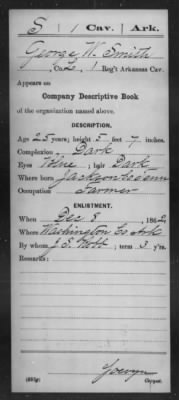 S | 1 Cav. | Ark.
George W. Smith
Co. L, 1 Reg't Arkansas Cav.
Appears on
Company Descriptive Book
of the organization named above.
DESCRIPTION.
Age 25 years; height 5 feet 7 inches.
Complexion Dark
Eyes Blue; hair Dark
Where born Jackson Co Tenn
Occupation Farmer
ENLISTMENT.
When Dec 8, 1862
Where Washington Co Ark
By whom J. S. Robb; term 3 y'rs.
Remarks:
(383g) Copyist.